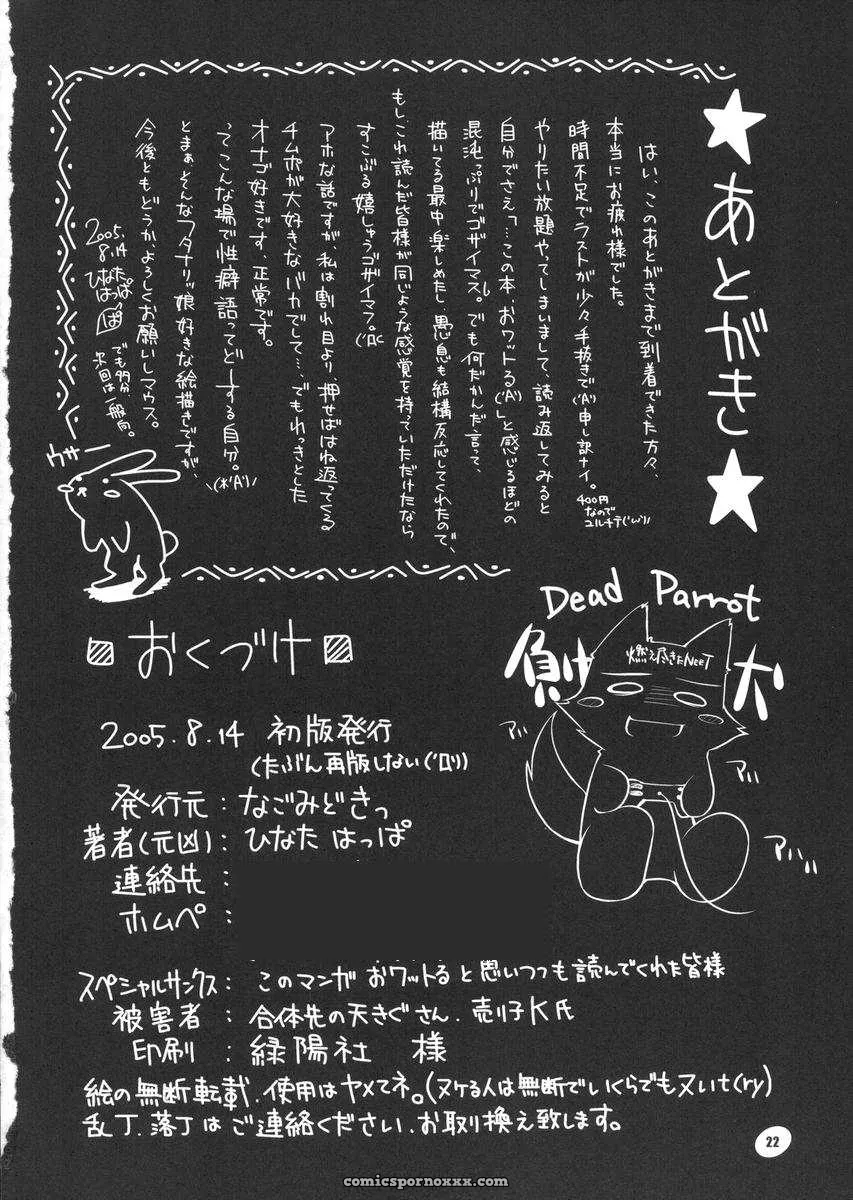 ★あとがき★
はい、このあとがきまで到着できた方々、
本当にお疲れ様でした。
時間不足でラストが少々手抜きで('A`)申し訳ナイ。
400円
なので
ユルチテ('ω`)ﾉ
やりたい放題やってしまいまして、読み返してみると
自分でさえ「…この本、おワットる('A`)」と感じるほどの
混沌っぷりでゴザイマス。でも何だかんだ言って、
描いてる最中、楽しめたし、愚息も結構反応してくれたので、
もし、これ読んだ皆様が同じような感覚を持っていただけたなら
すこぶる嬉しゅうゴザイマス。
アホな話ですが、私は割れ目より、押せばはね返ってくる
チムポが大好きなバカでして…、でもれっきとした
オナゴ好きです、正常です。
ってこんな場で性癖語ってどーする自分。
とまぁ、そんなフタナリッ娘好きな絵描きですが、
今後ともどうか、よろしくお願いしマウス。
でも多分
次回は一般向。
2005.
8.14
ひなた
はっぱ
ぱ
ウサー
Dead Parrot
負け犬
燃え尽きたNEET
アハ
アハ
アハハ
おくづけ
2005.8.14 初版発行
(たぶん再版しない('ロ`))
発行元：なごみどきっ
著者(元凶)：ひなた はっぱ
連絡先：
ホムペ：
スペシャルサンクス：このマンガ おワットると思いつつも読んでくれた皆様
被害者：合体先の天きぐさん、売り子K氏
印刷：緑陽社 様
絵の無断転載、使用はヤメてネ。(ヌケる人は無断でいくらでもヌいt(ry)
乱丁、落丁はご連絡ください、お取り換え致します。
22
comicspornoxxx.com